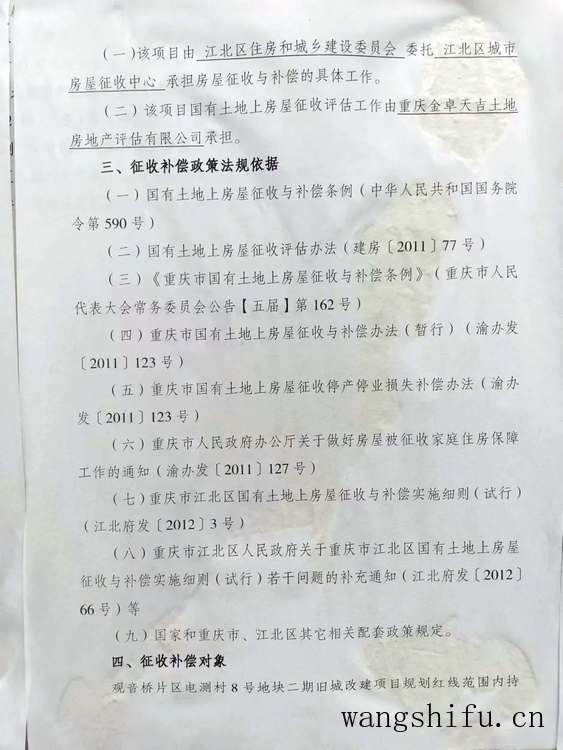 （一）该项目由 江北区住房和城乡建设委员会 委托 江北区城市
房屋征收中心 承担房屋征收与补偿的具体工作。
（二）该项目国有土地上房屋征收评估工作由重庆金卓天吉土地
房地产评估有限公司承担。
三、征收补偿政策法规依据
（一）国有土地上房屋征收与补偿条例（中华人民共和国国务院
令第 590 号）
（二）国有土地上房屋征收评估办法（建房〔2011〕77 号）
（三）《重庆市国有土地上房屋征收与补偿条例》（重庆市人民
代表大会常务委员会公告【五届】第 162 号）
（四）重庆市国有土地上房屋征收与补偿办法（暂行）（渝办发
〔2011〕123 号）
（五）重庆市国有土地上房屋征收停产停业损失补偿办法（渝办
发〔2011〕123 号）
（六）重庆市人民政府办公厅关于做好房屋被征收家庭住房保障
工作的通知（渝办发〔2011〕127 号）
（七）重庆市江北区国有土地上房屋征收与补偿实施细则（试行）
（江北府发〔2012〕3 号）
（八）重庆市江北区人民政府关于重庆市江北区国有土地上房屋
征收与补偿实施细则（试行）若干问题的补充通知（江北府发〔2012〕
66 号）等
（九）国家和重庆市、江北区其它相关配套政策规定。
四、征收补偿对象
观音桥片区电测村 8 号地块二期旧城改建项目规划红线范围内持
wangshifu.cn